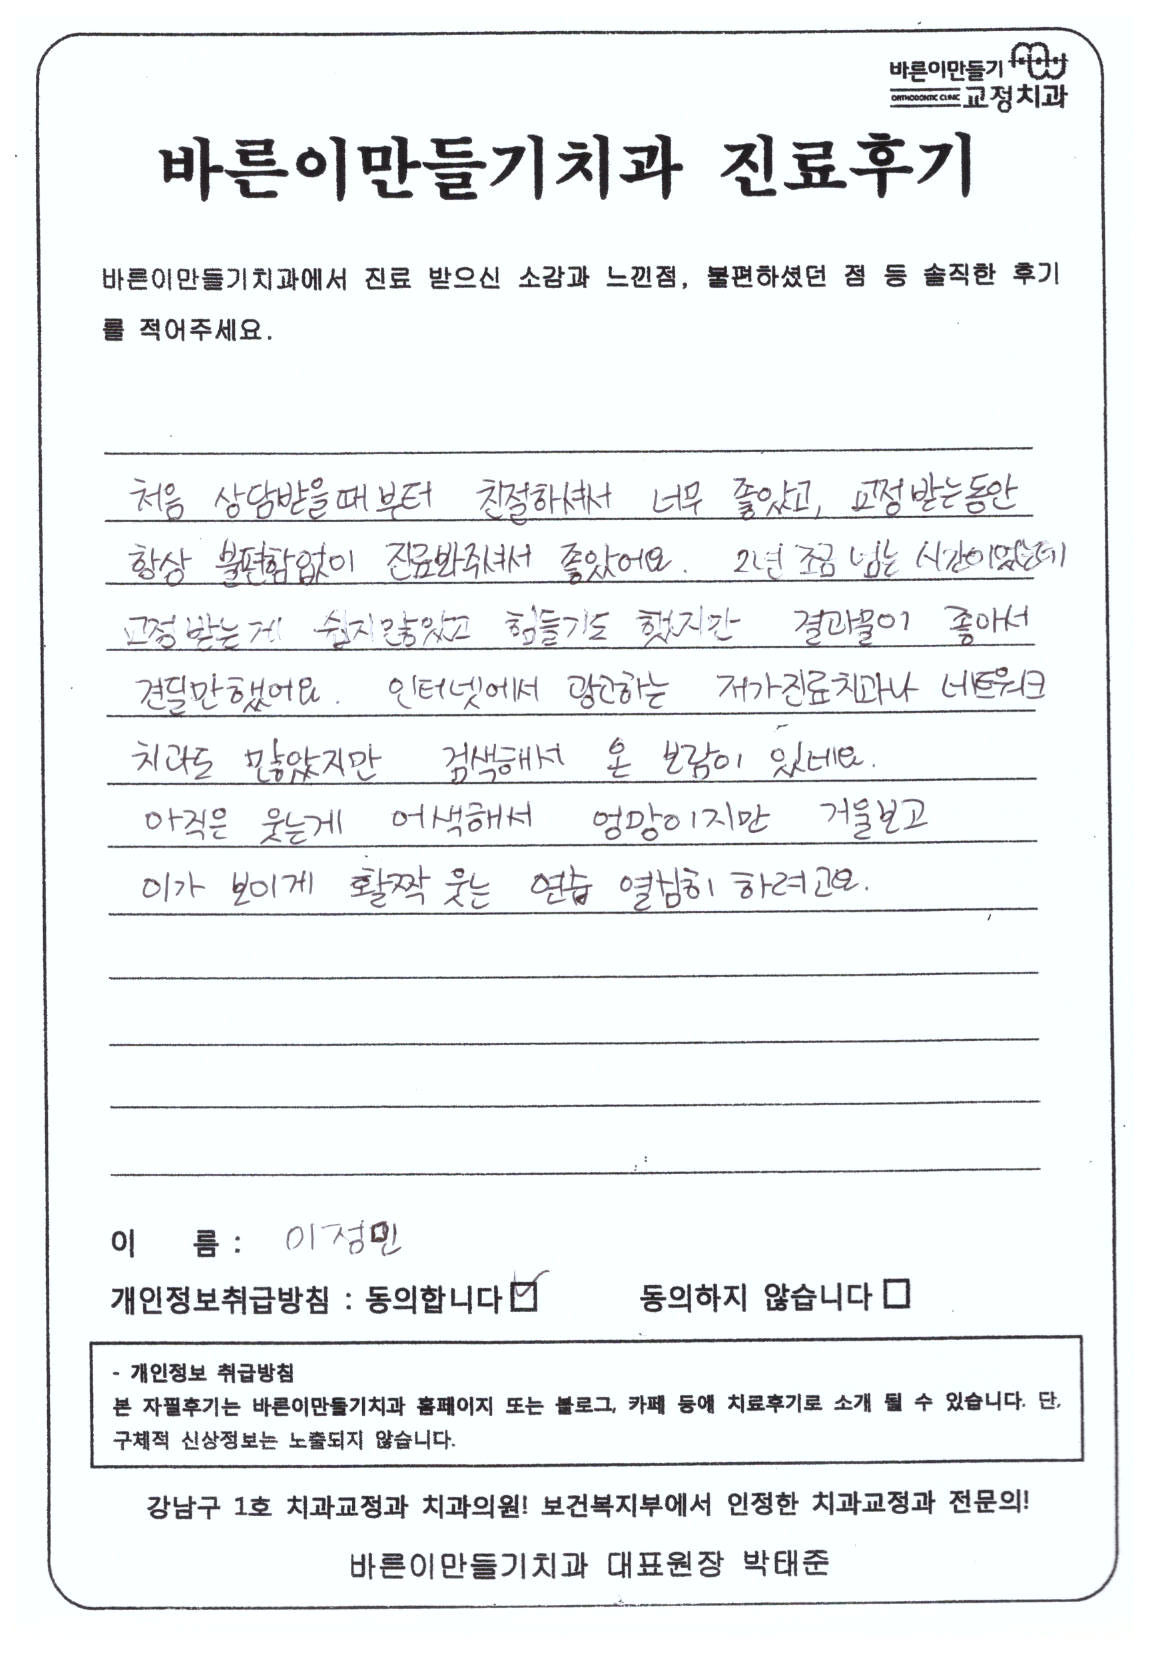 바른이만들기
ORTHODONTIC CLINIC 교정치과
바른이만들기치과 진료후기
바른이만들기치과에서 진료 받으신 소감과 느낀점, 불편하셨던 점 등 솔직한 후기
를 적어주세요.
처음 상담받을때부터 친절하셔서 너무 좋았고, 교정받는동안
항상 불편함없이 진료봐주셔서 좋았어요. 2년 조금 넘는 시간이었는데
교정받는게 쉽지않았고 힘들기도 했지만 결과물이 좋아서
견딜만했어요. 인터넷에서 광고하는 저가진료치과나 네트워크
치과도 많았지만 검색해서 온 보람이 있네요.
아직은 웃는게 어색해서 엉망이지만 거울보고
이가 보이게 활짝 웃는 연습 열심히 하려고요.
이 름 : 이정민
개인정보취급방침 : 동의합니다 ☑ 동의하지 않습니다 ☐
- 개인정보 취급방침
본 자필후기는 바른이만들기치과 홈페이지 또는 블로그, 카페 등에 치료후기로 소개 될 수 있습니다. 단,
구체적 신상정보는 노출되지 않습니다.
강남구 1호 치과교정과 치과의원! 보건복지부에서 인정한 치과교정과 전문의!
바른이만들기치과 대표원장 박태준